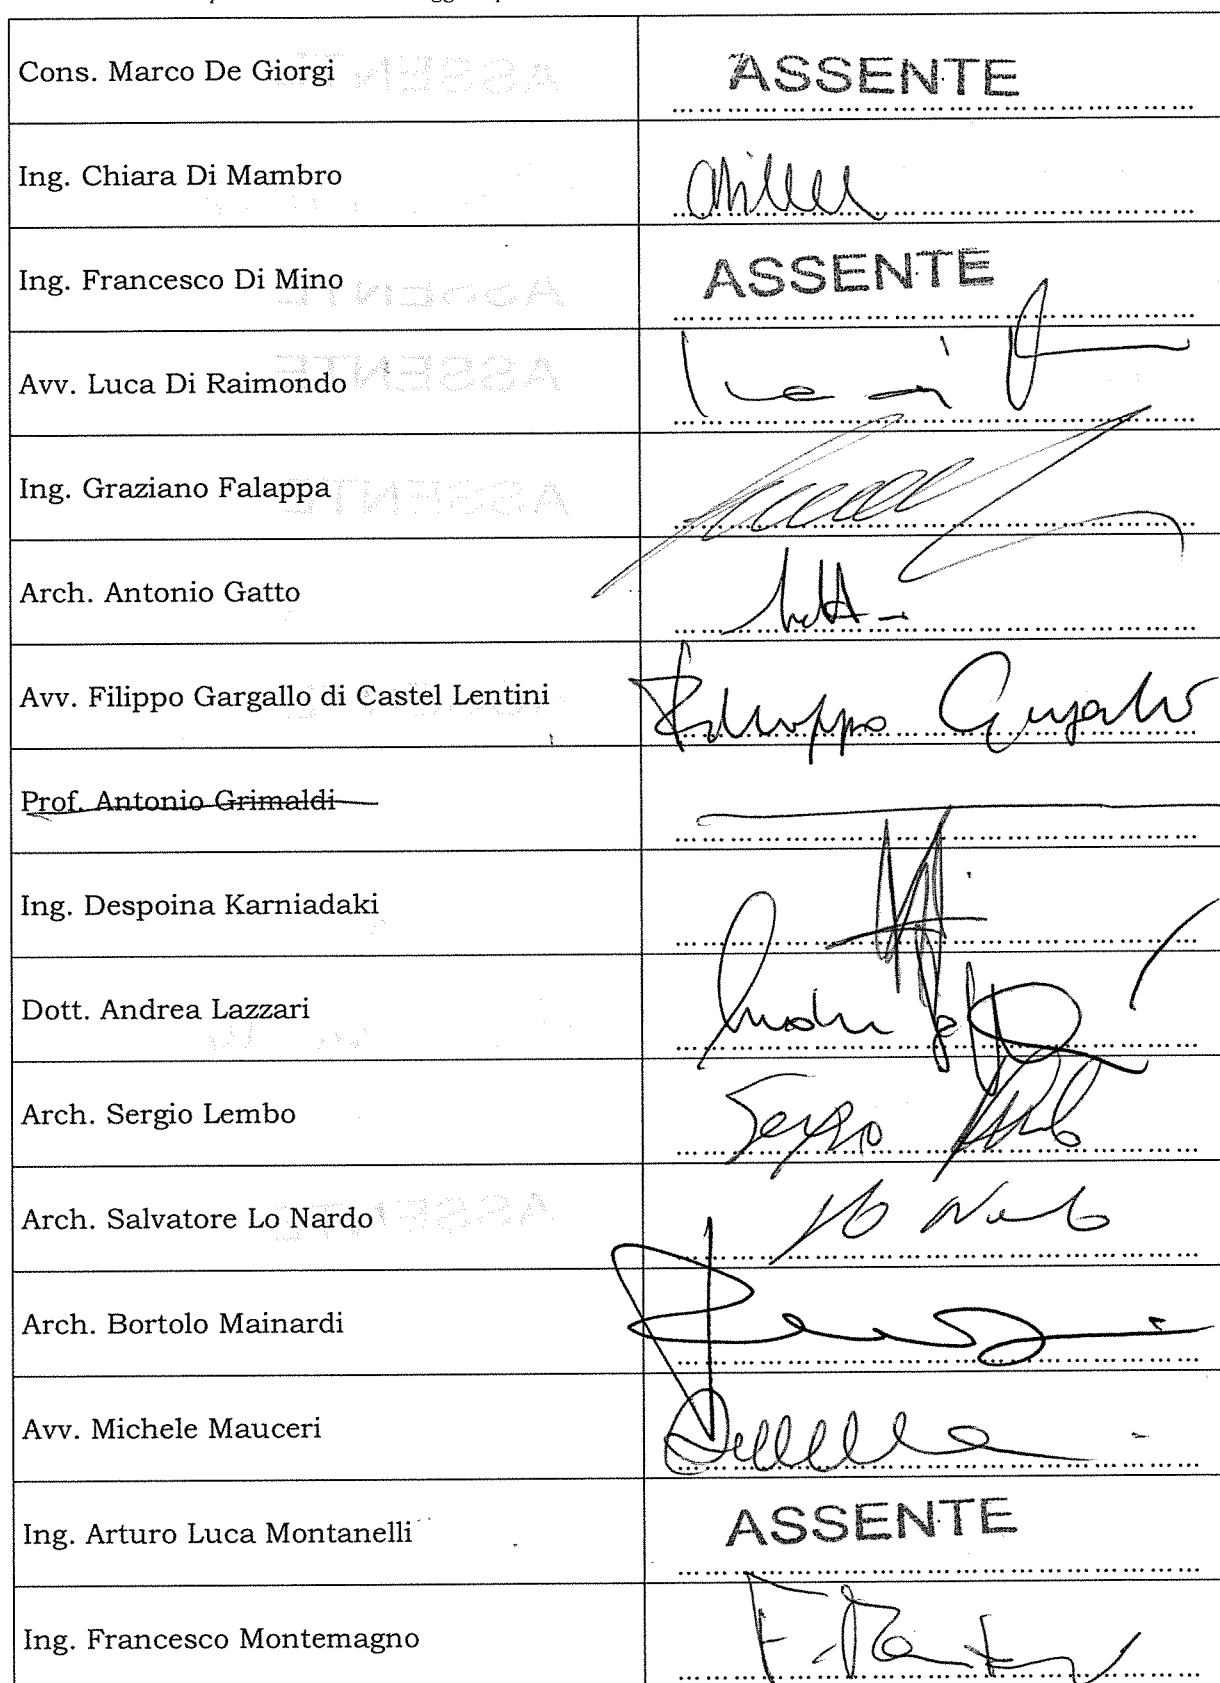 Cons. Marco De Giorgi ASSENTE
Ing. Chiara Di Mambro
Ing. Francesco Di Mino ASSENTE
Avv. Luca Di Raimondo
Ing. Graziano Falappa
Arch. Antonio Gatto
Avv. Filippo Gargallo di Castel Lentini Filippo Gargallo
Prof. Antonio Grimaldi
Ing. Despoina Karniadaki
Dott. Andrea Lazzari
Arch. Sergio Lembo Sergio Lembo
Arch. Salvatore Lo Nardo Lo Nardo
Arch. Bortolo Mainardi
Avv. Michele Mauceri
Ing. Arturo Luca Montanelli ASSENTE
Ing. Francesco Montemagno